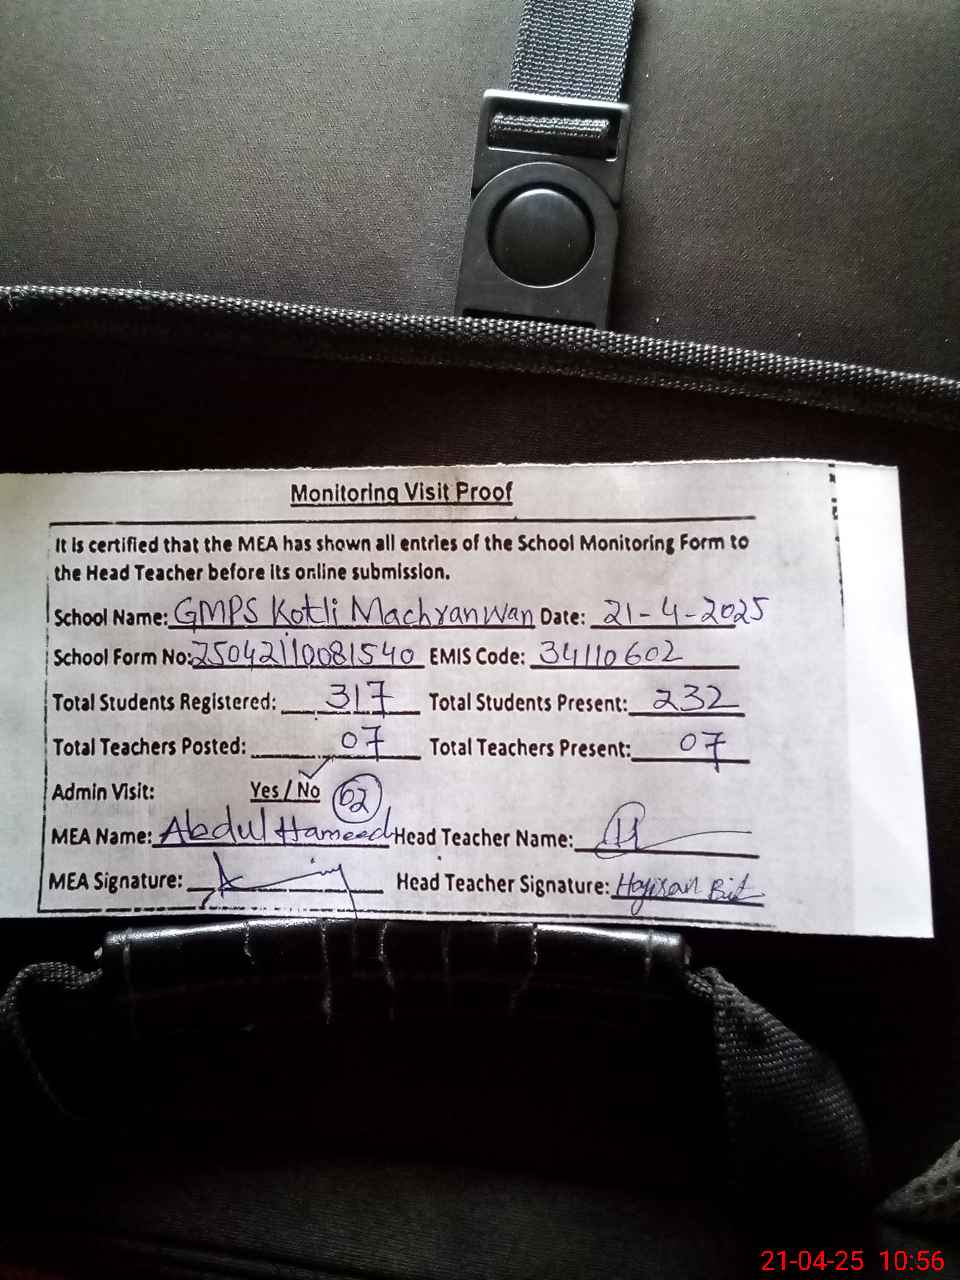 Monitoring Visit Proof
It is certified that the MEA has shown all entries of the School Monitoring Form to
the Head Teacher before its online submission.
School Name: GMPS Kotli Machranwan Date: 21-4-2025
School Form No: 25042110081540 EMIS Code: 34110602
Total Students Registered: 317 Total Students Present: 232
Total Teachers Posted: 07 Total Teachers Present: 07
Admin Visit: Yes / No 02
MEA Name: Abdul Hameed Head Teacher Name:
MEA Signature: Head Teacher Signature:
21-04-25 10:56